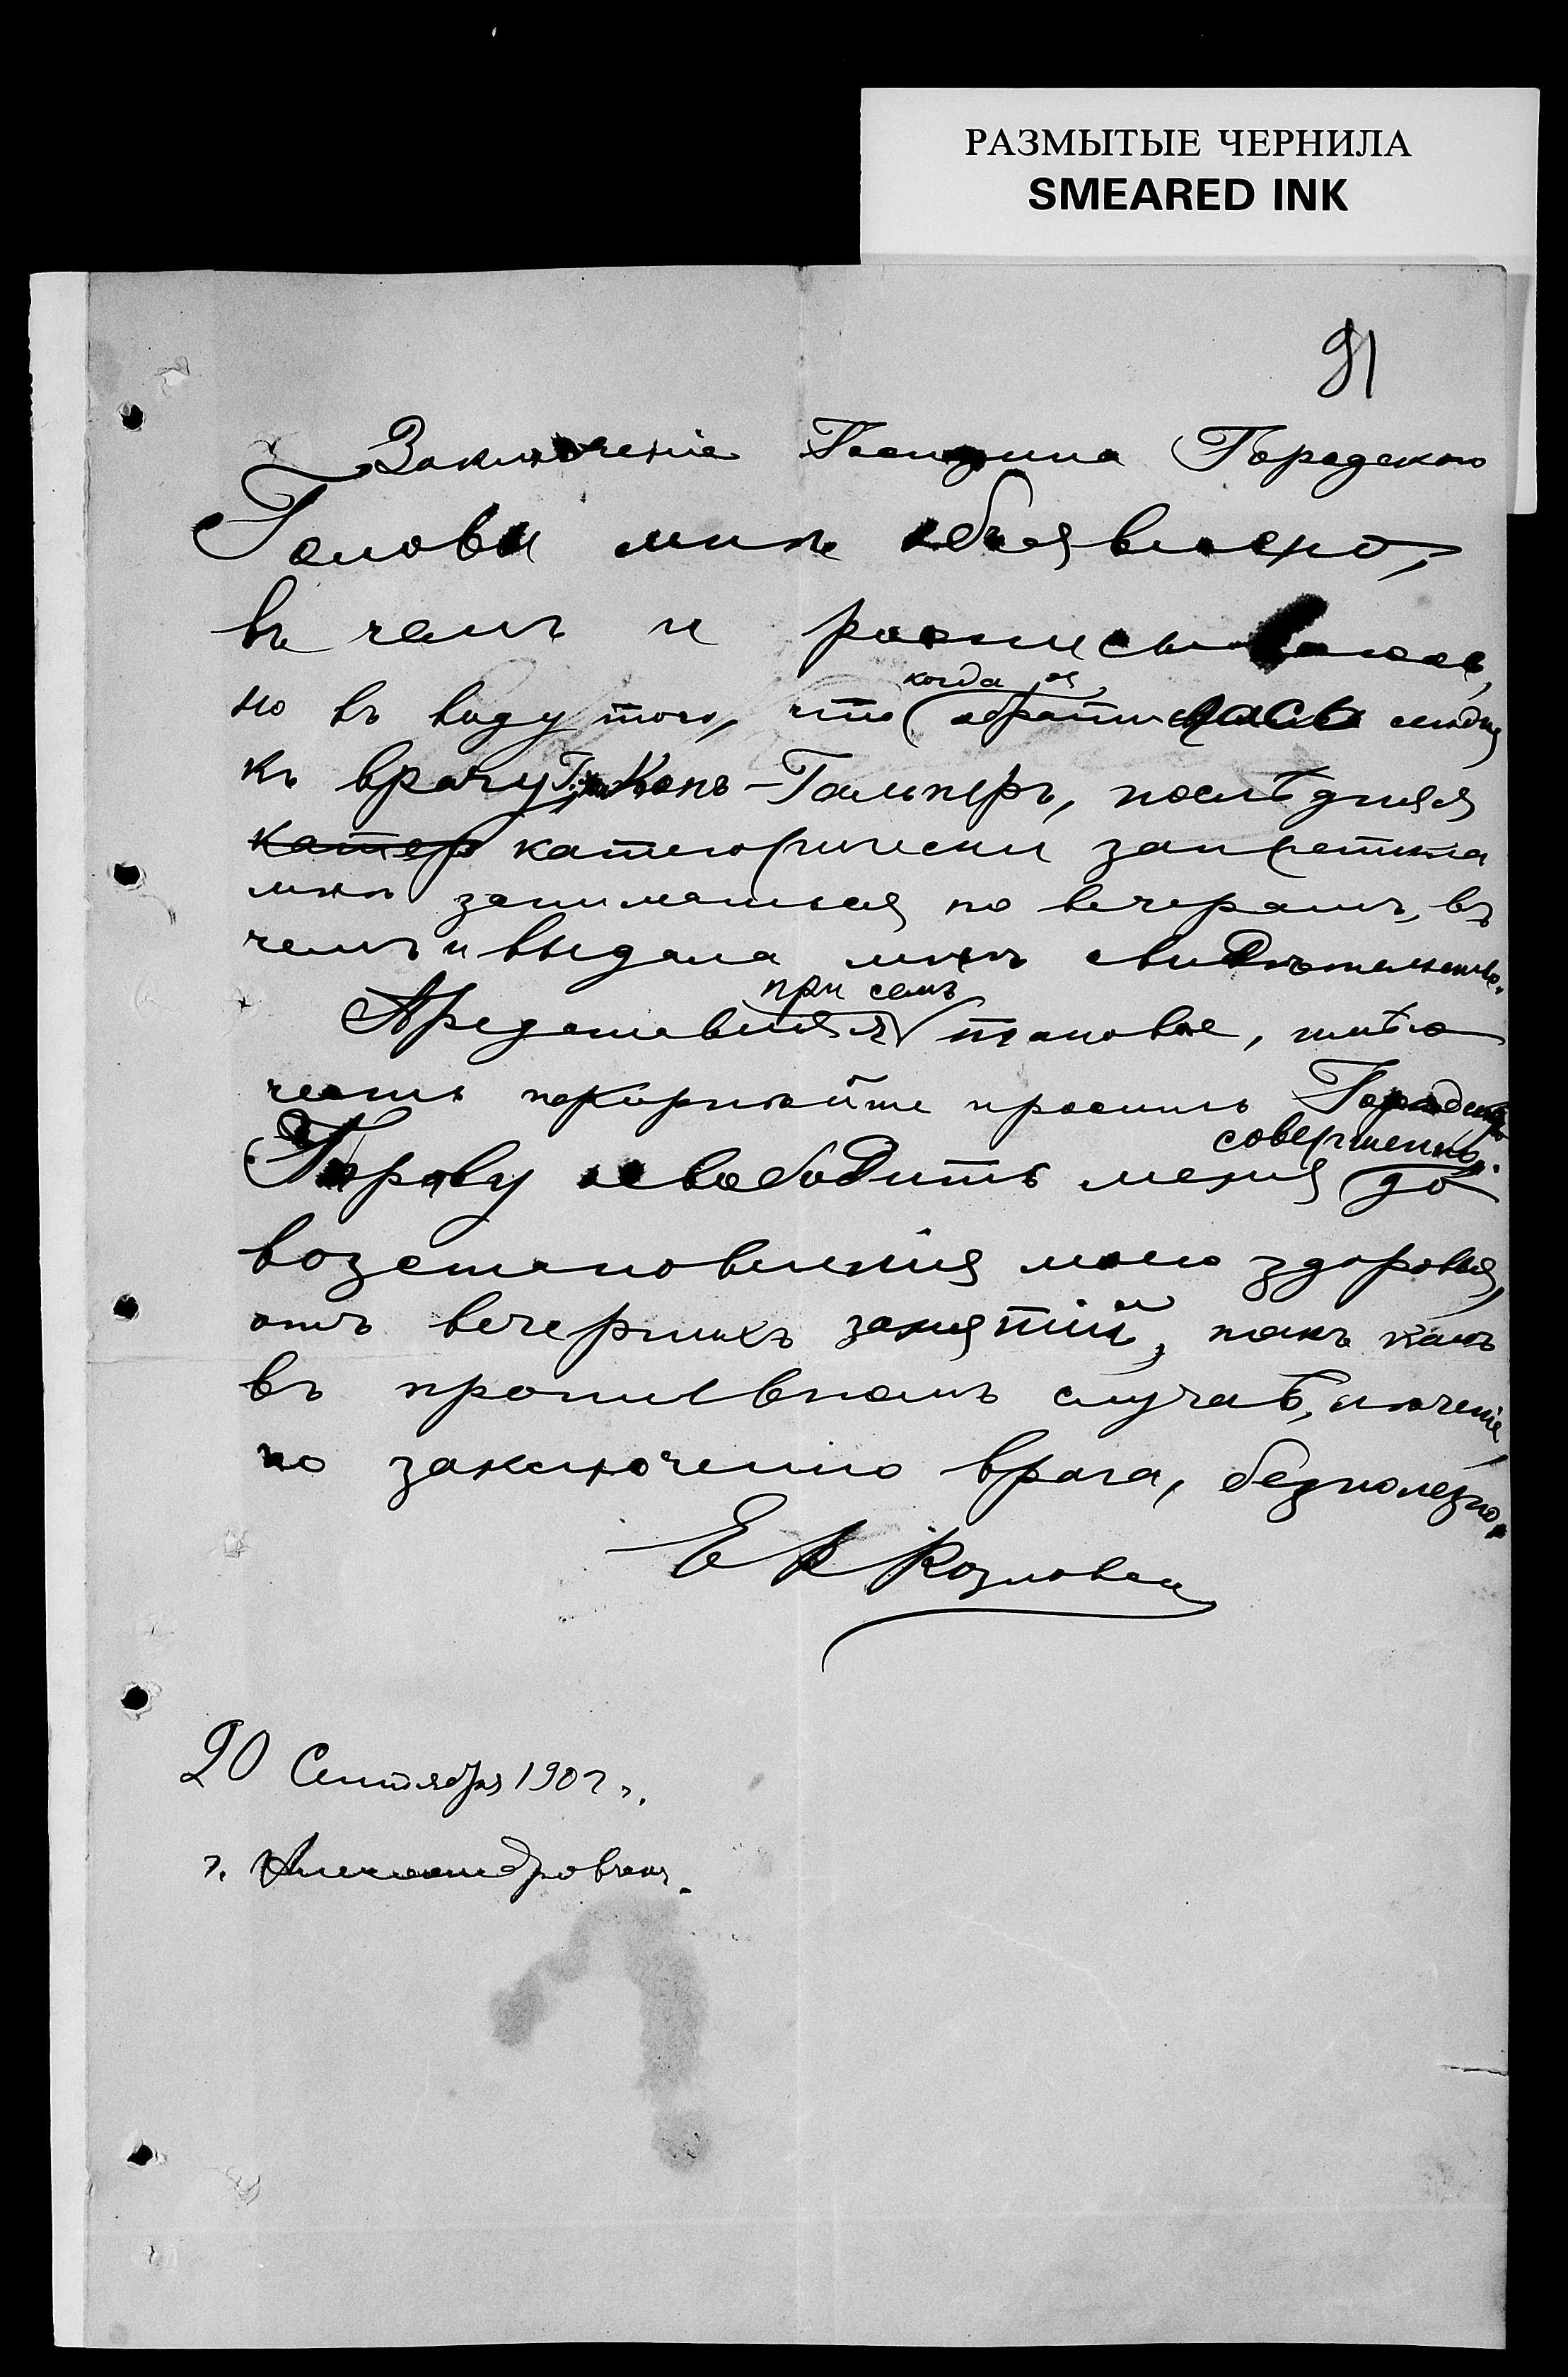 РАЗМЫТЫЕ ЧЕРНИЛА
SMEARED INK
91
Заключеніе Господина Городского
Головы мнѣ объявлено,
въ чемъ и росписываюсь,
когда я
но въ виду того, что обратилась
къ врачу Г. Конъ-Гальперъ, послѣдняя
катер категорически запретила
мнѣ заниматься по вечерамъ, въ
чемъ и выдала мнѣ свидѣтельство.
при семъ
Представляя таковое, имѣю
честь покорнѣйше просить Городскую
совершенно
Управу освободить меня до
возстановленія моего здоровья,
отъ вечернихъ занятій, такъ какъ
въ противномъ случаѣ, леченіе,
по заключенію врача, безполезно.
Е К Козловская
20 Сентября 1907 г.
г. Александровскъ.